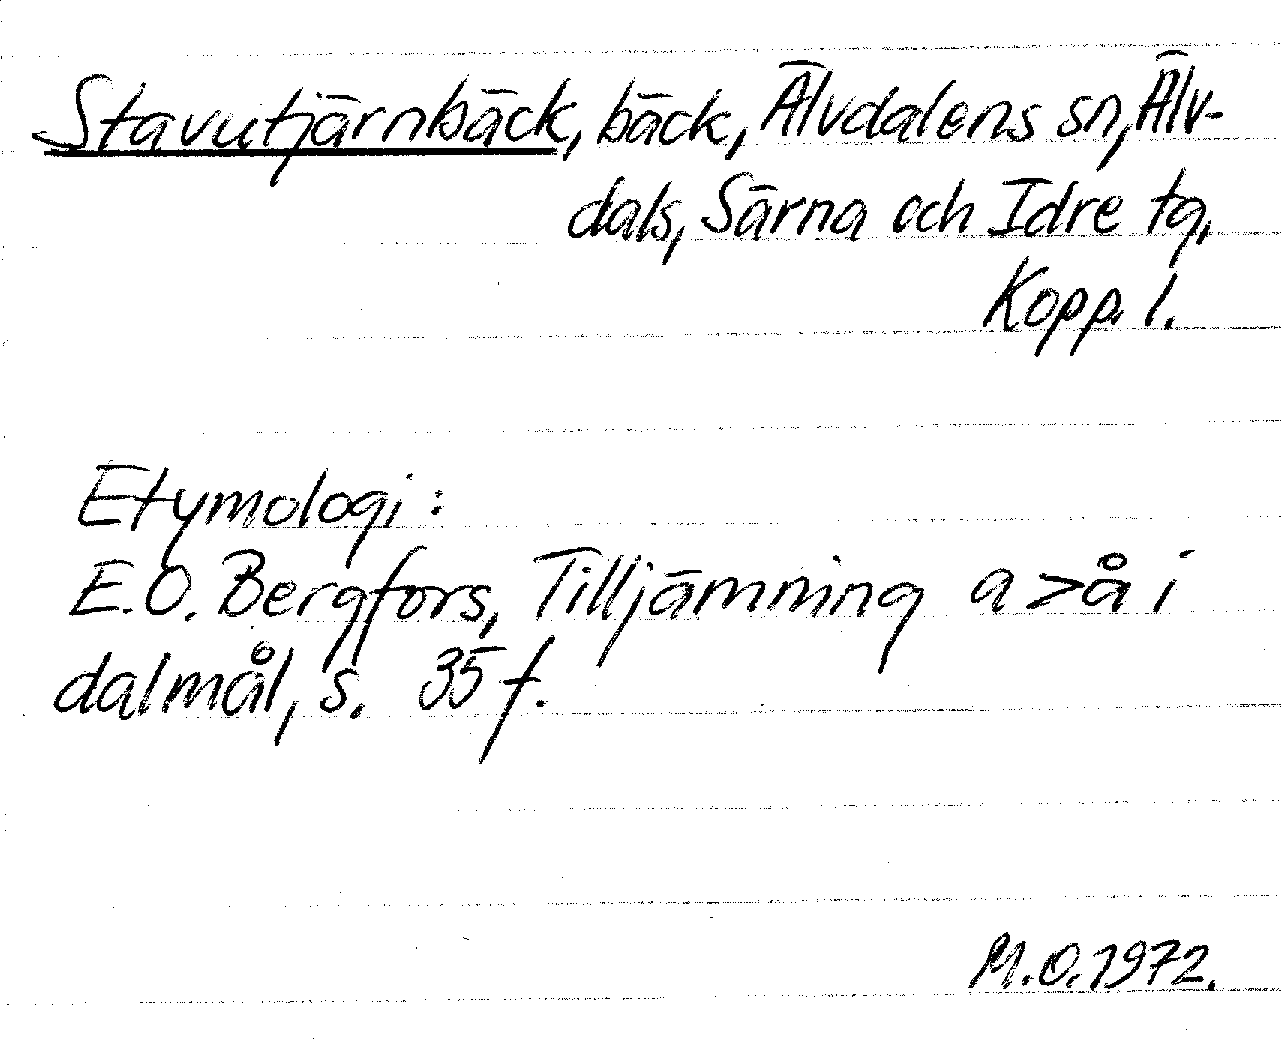 Stavutjärnbäck, bäck, Älvdalens sn, Älv-
dals, Särna och Idre tg,
Kopp. l.
Etymologi:
E.O. Bergfors, Tilljämning a>å i
dalmål, s. 35 f.
M.O. 1972.